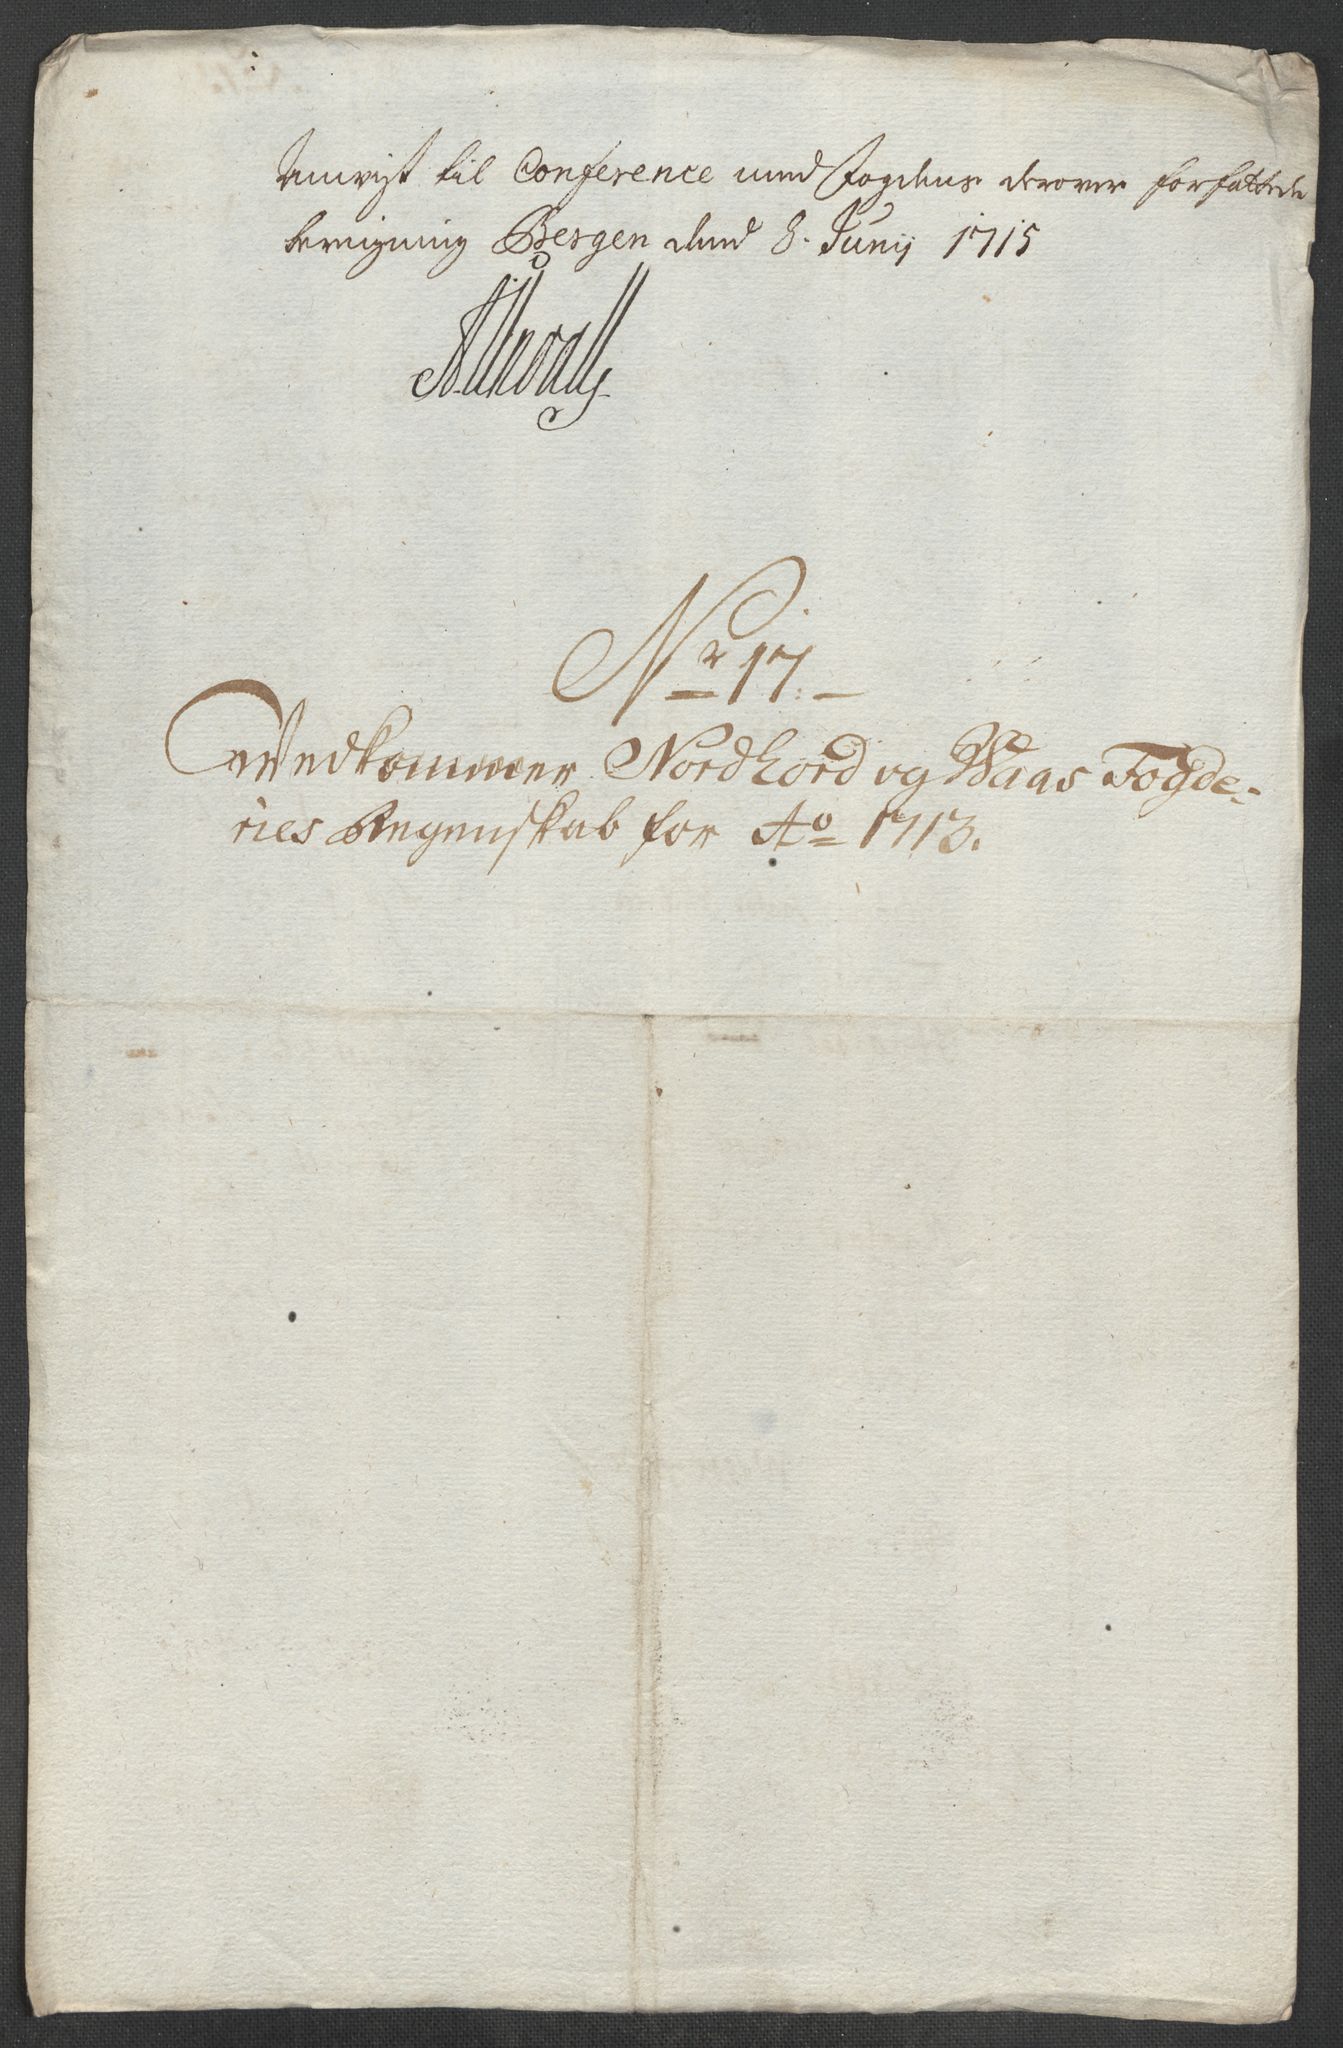 Anvist til Conference med Fogdens derover forfattede
bereigning Bergen dend 8. Junij 1715
Nr 17.
Vedkommer Nordhord og Waas Fogde-
ries Regenskab for Ao 1713.